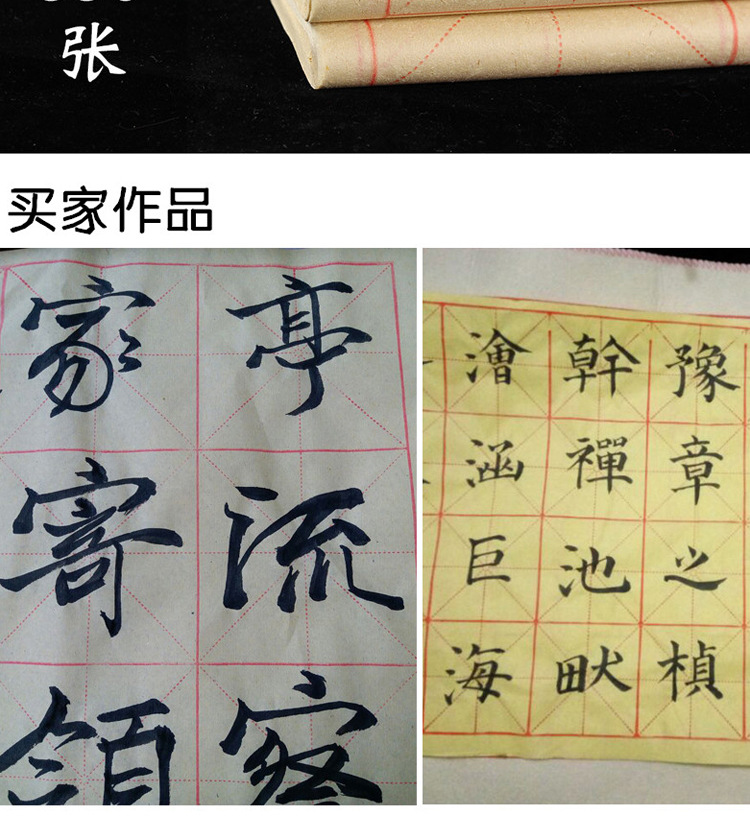 张
买家作品
亭流察
家寄領
豫章之楨
幹禪池畎
澮涵巨海